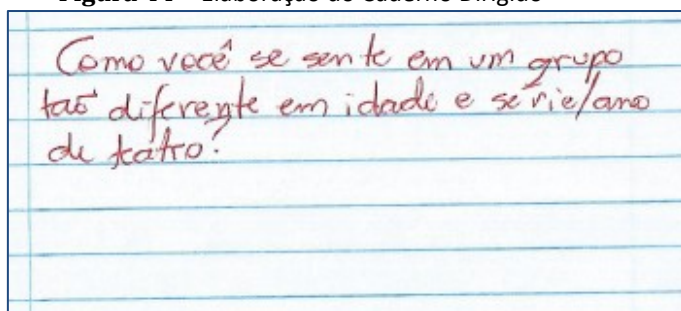 Figura 44 - Elaboração do Caderno Dirigido
Como você se sente em um grupo
tão diferente em idade e série/ano
de teatro?